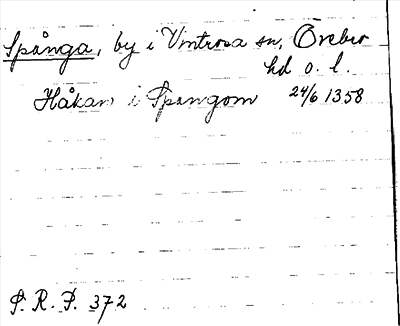 Spånga, by i Vintrosa sn, Örebro
hd o. l.
Håkan i Spangom 24/6 1358
S. R. P. 372